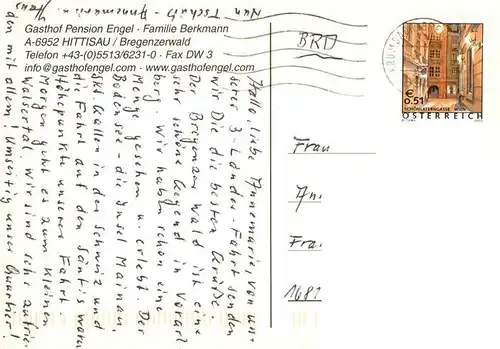 Gasthof Pension Engel · Familie Berkmann
A-6952 HITTISAU / Bregenzerwald
Telefon +43-(0)5513/6231-0 · Fax DW 3
info@gasthofengel.com · www.gasthofengel.com
Hallo, liebe Annemarie, von un-
serer 3-Länder-Fahrt senden
wir Dir die besten Grüße.
Der Bregenzer Wald ist eine
sehr schöne Gegend in Vorarl-
berg. Wir haben schon eine
Menge gesehen u. erlebt. Der
Bodensee - die Insel Mainau,
St. Gallen in der Schweiz und
die Fahrt auf den Säntis waren
Höhepunkte unserer Fahrt.
Morgen geht es zum Kleinen
Walsertal. Wir sind sehr zufrie-
den mit allem! Umseitig unser Quartier!
Nun Tschüß - Annemarie u.
BRD
€
0,51
SCHÖNLATERNGASSE WIEN
ÖSTERREICH
Frau
An.
Fra.
1681